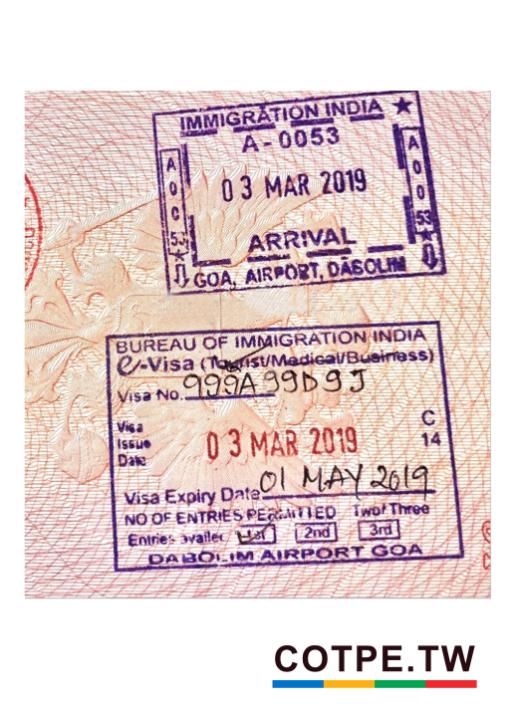 IMMIGRATION INDIA
A-0053
03 MAR 2019
ARRIVAL
GOA, AIRPORT, DABOLIM
BUREAU OF IMMIGRATION INDIA
e-Visa (Tourist/Medical/Business)
Visa No. 999A99D9J
Visa Issue Date 03 MAR 2019
C 14
Visa Expiry Date 01 MAY 2019
NO OF ENTRIES PERMITTED Two/Three
Entries availed 1st 2nd 3rd
DABOLIM AIRPORT GOA
COTPE.TW